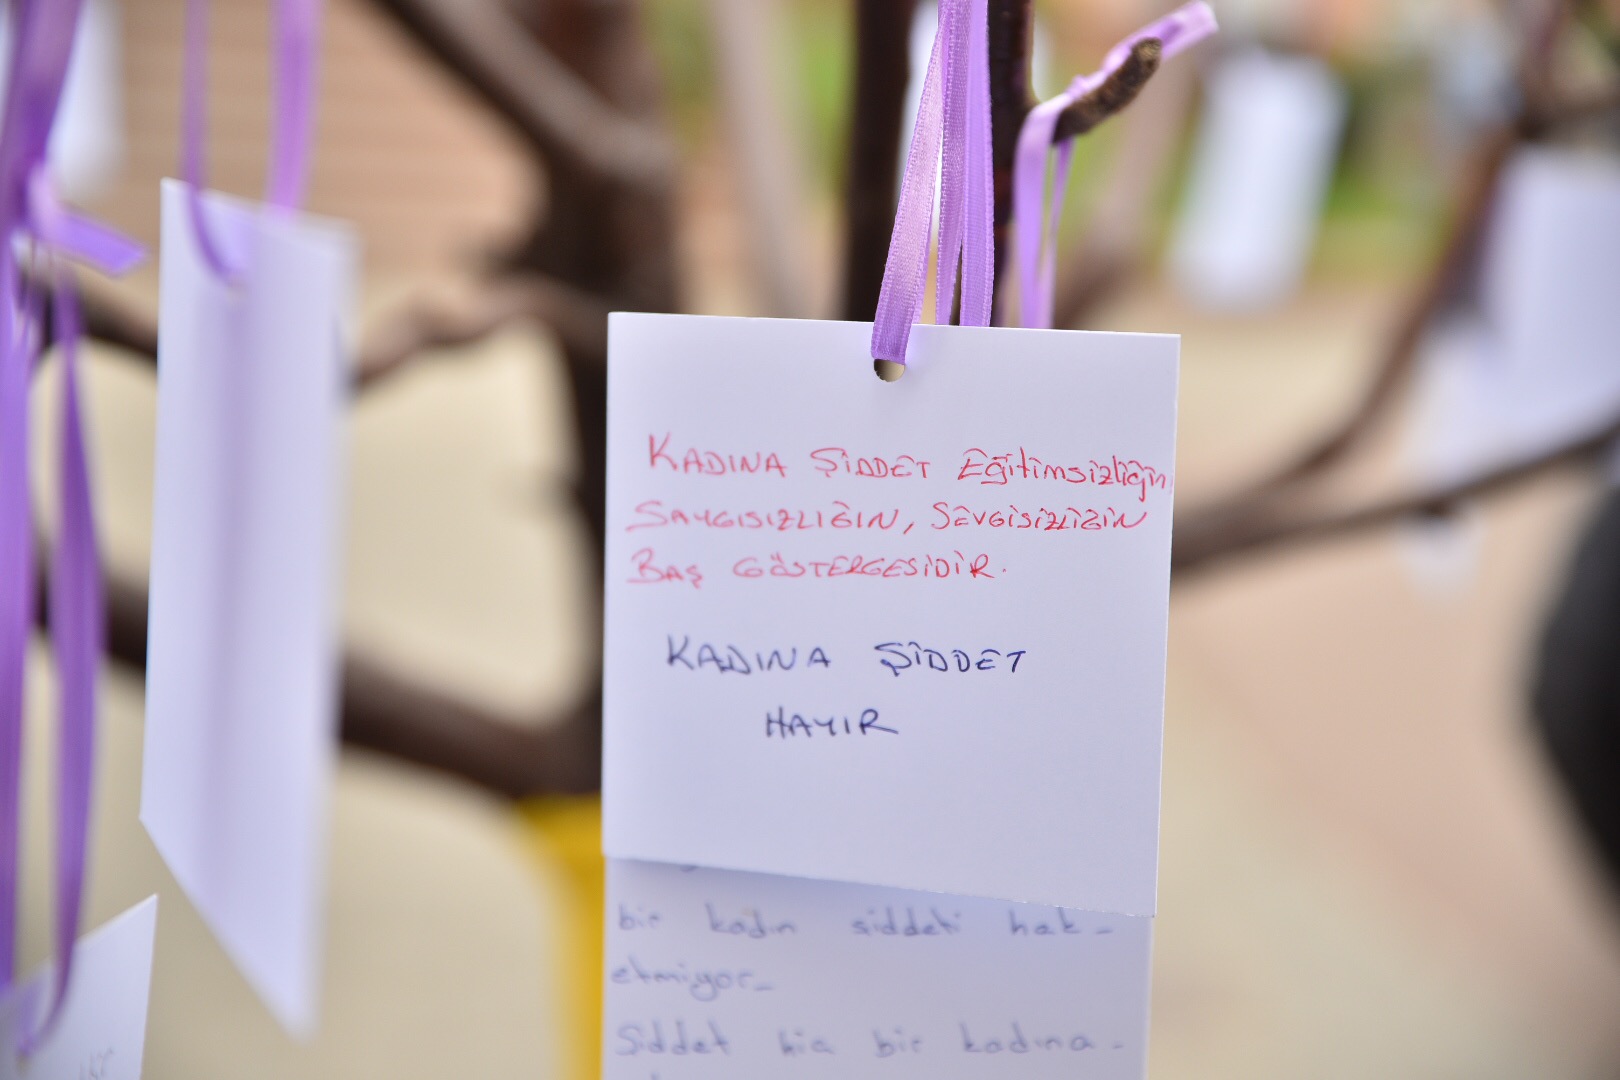 KADINA ŞİDDET Eğitimsizliğin
SAYGISIZLIĞIN, SEVGİSİZLİĞİN
BAŞ GÖSTERGESİDİR.
KADINA ŞİDDET
HAYIR
bir kadın şiddeti hak-
etmiyor-
Şiddet hiç bir kadına-